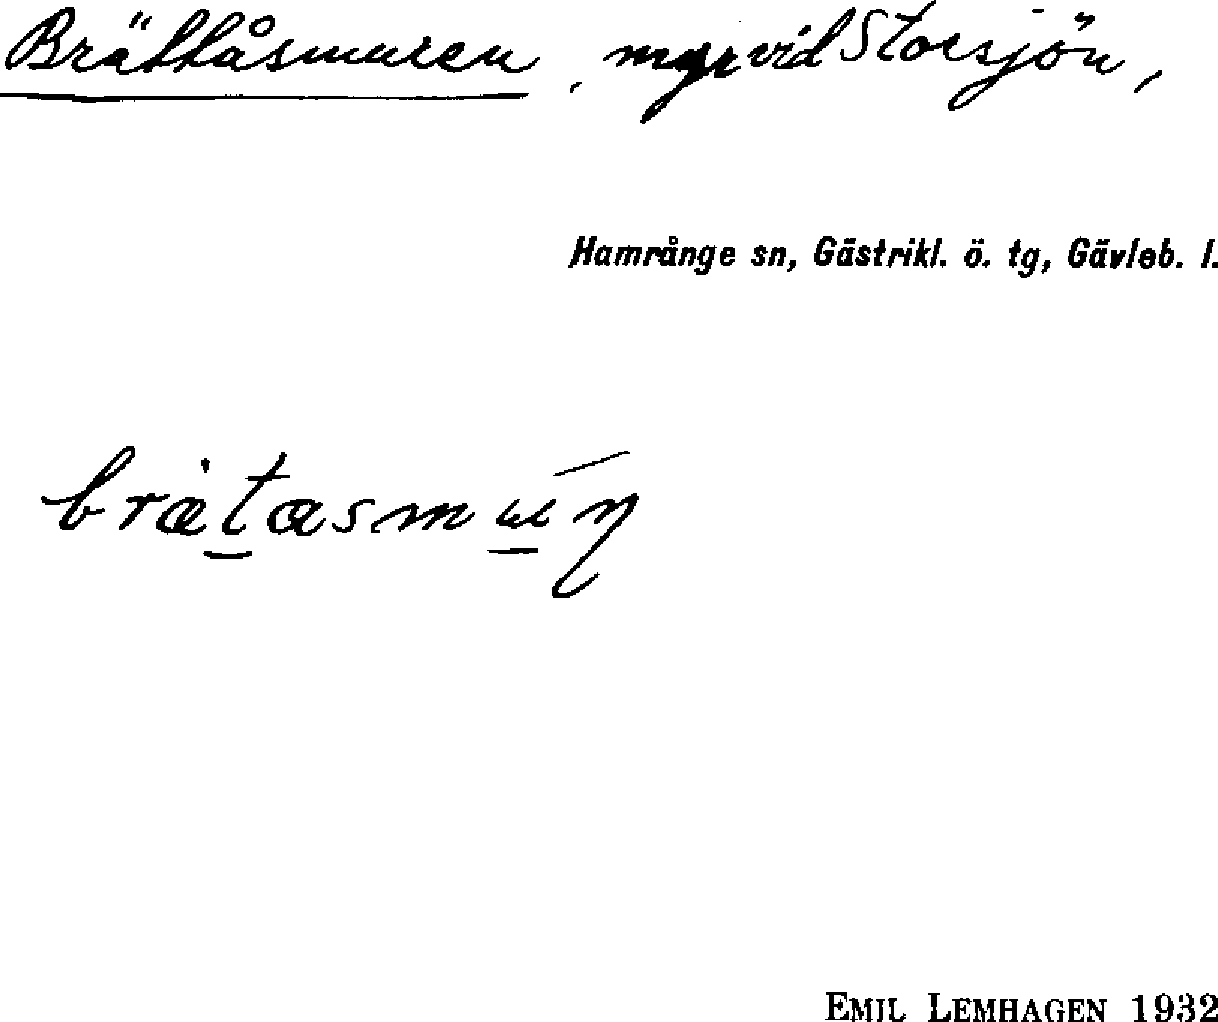 Brättåsmuren, myr vid Storsjön,
Hamrånge sn, Gästrikl. ö. tg, Gävleb. l.
EMIL LEMHAGEN 1932